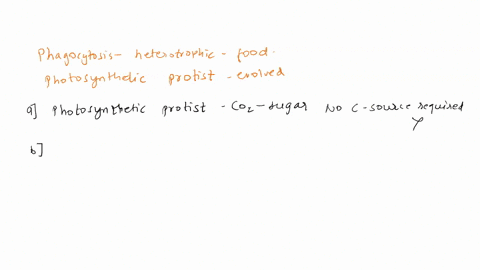 Phagocytosis - heterotrophic - food.
Photosynthetic protist - evolved
a] Photosynthetic protist - CO2 - sugar No C-source required
b]